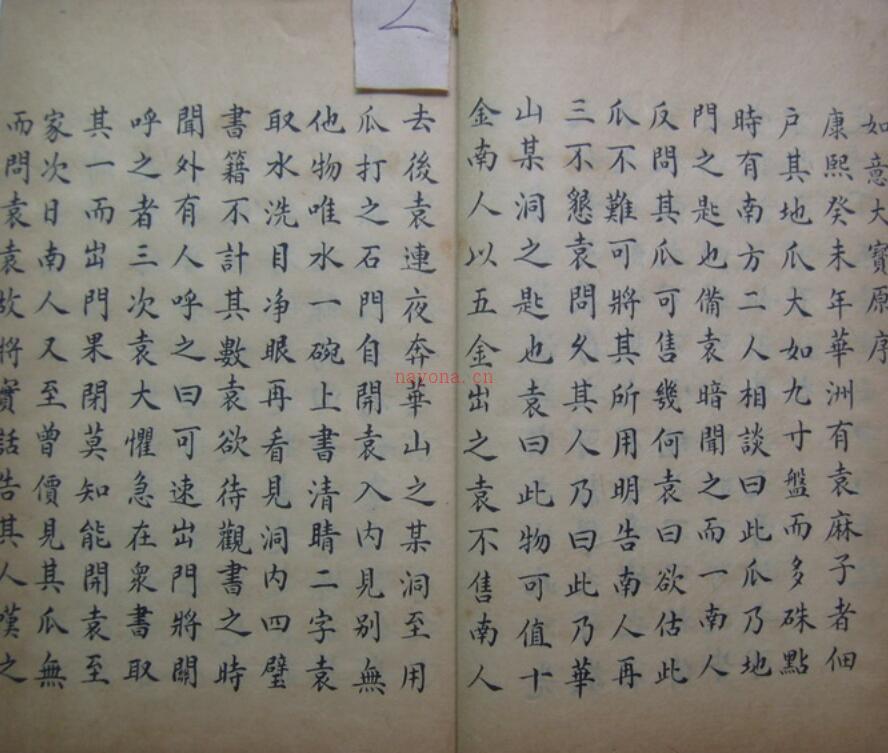 如意大寶原序
康熙癸未年華洲有袁麻子者佃
户其地瓜大如九寸盤而多硃點
時有南方二人相談曰此瓜乃地
門之匙也俻袁暗聞之而一南人
反問其瓜可售幾何袁曰欲估此
瓜不難可將其所用明告南人再
三不懇袁問久其人乃曰此乃華
山某洞之匙也袁曰此物可值十
金南人以五金出之袁不售南人
去後袁連夜奔華山之某洞至用
瓜打之石門自開袁入内見别無
他物唯水一碗上書清睛二字袁
取水洗目净眼再看見洞内四壁
書籍不計其數袁欲待觀書之時
聞外有人呼之曰可速出門將關
呼之者三次袁大懼急在衆書取
其一而出門果閉莫知能開袁至
家次日南人又至曾價見其瓜無
而問袁袁故將實話告其人嘆之
nayona.cn